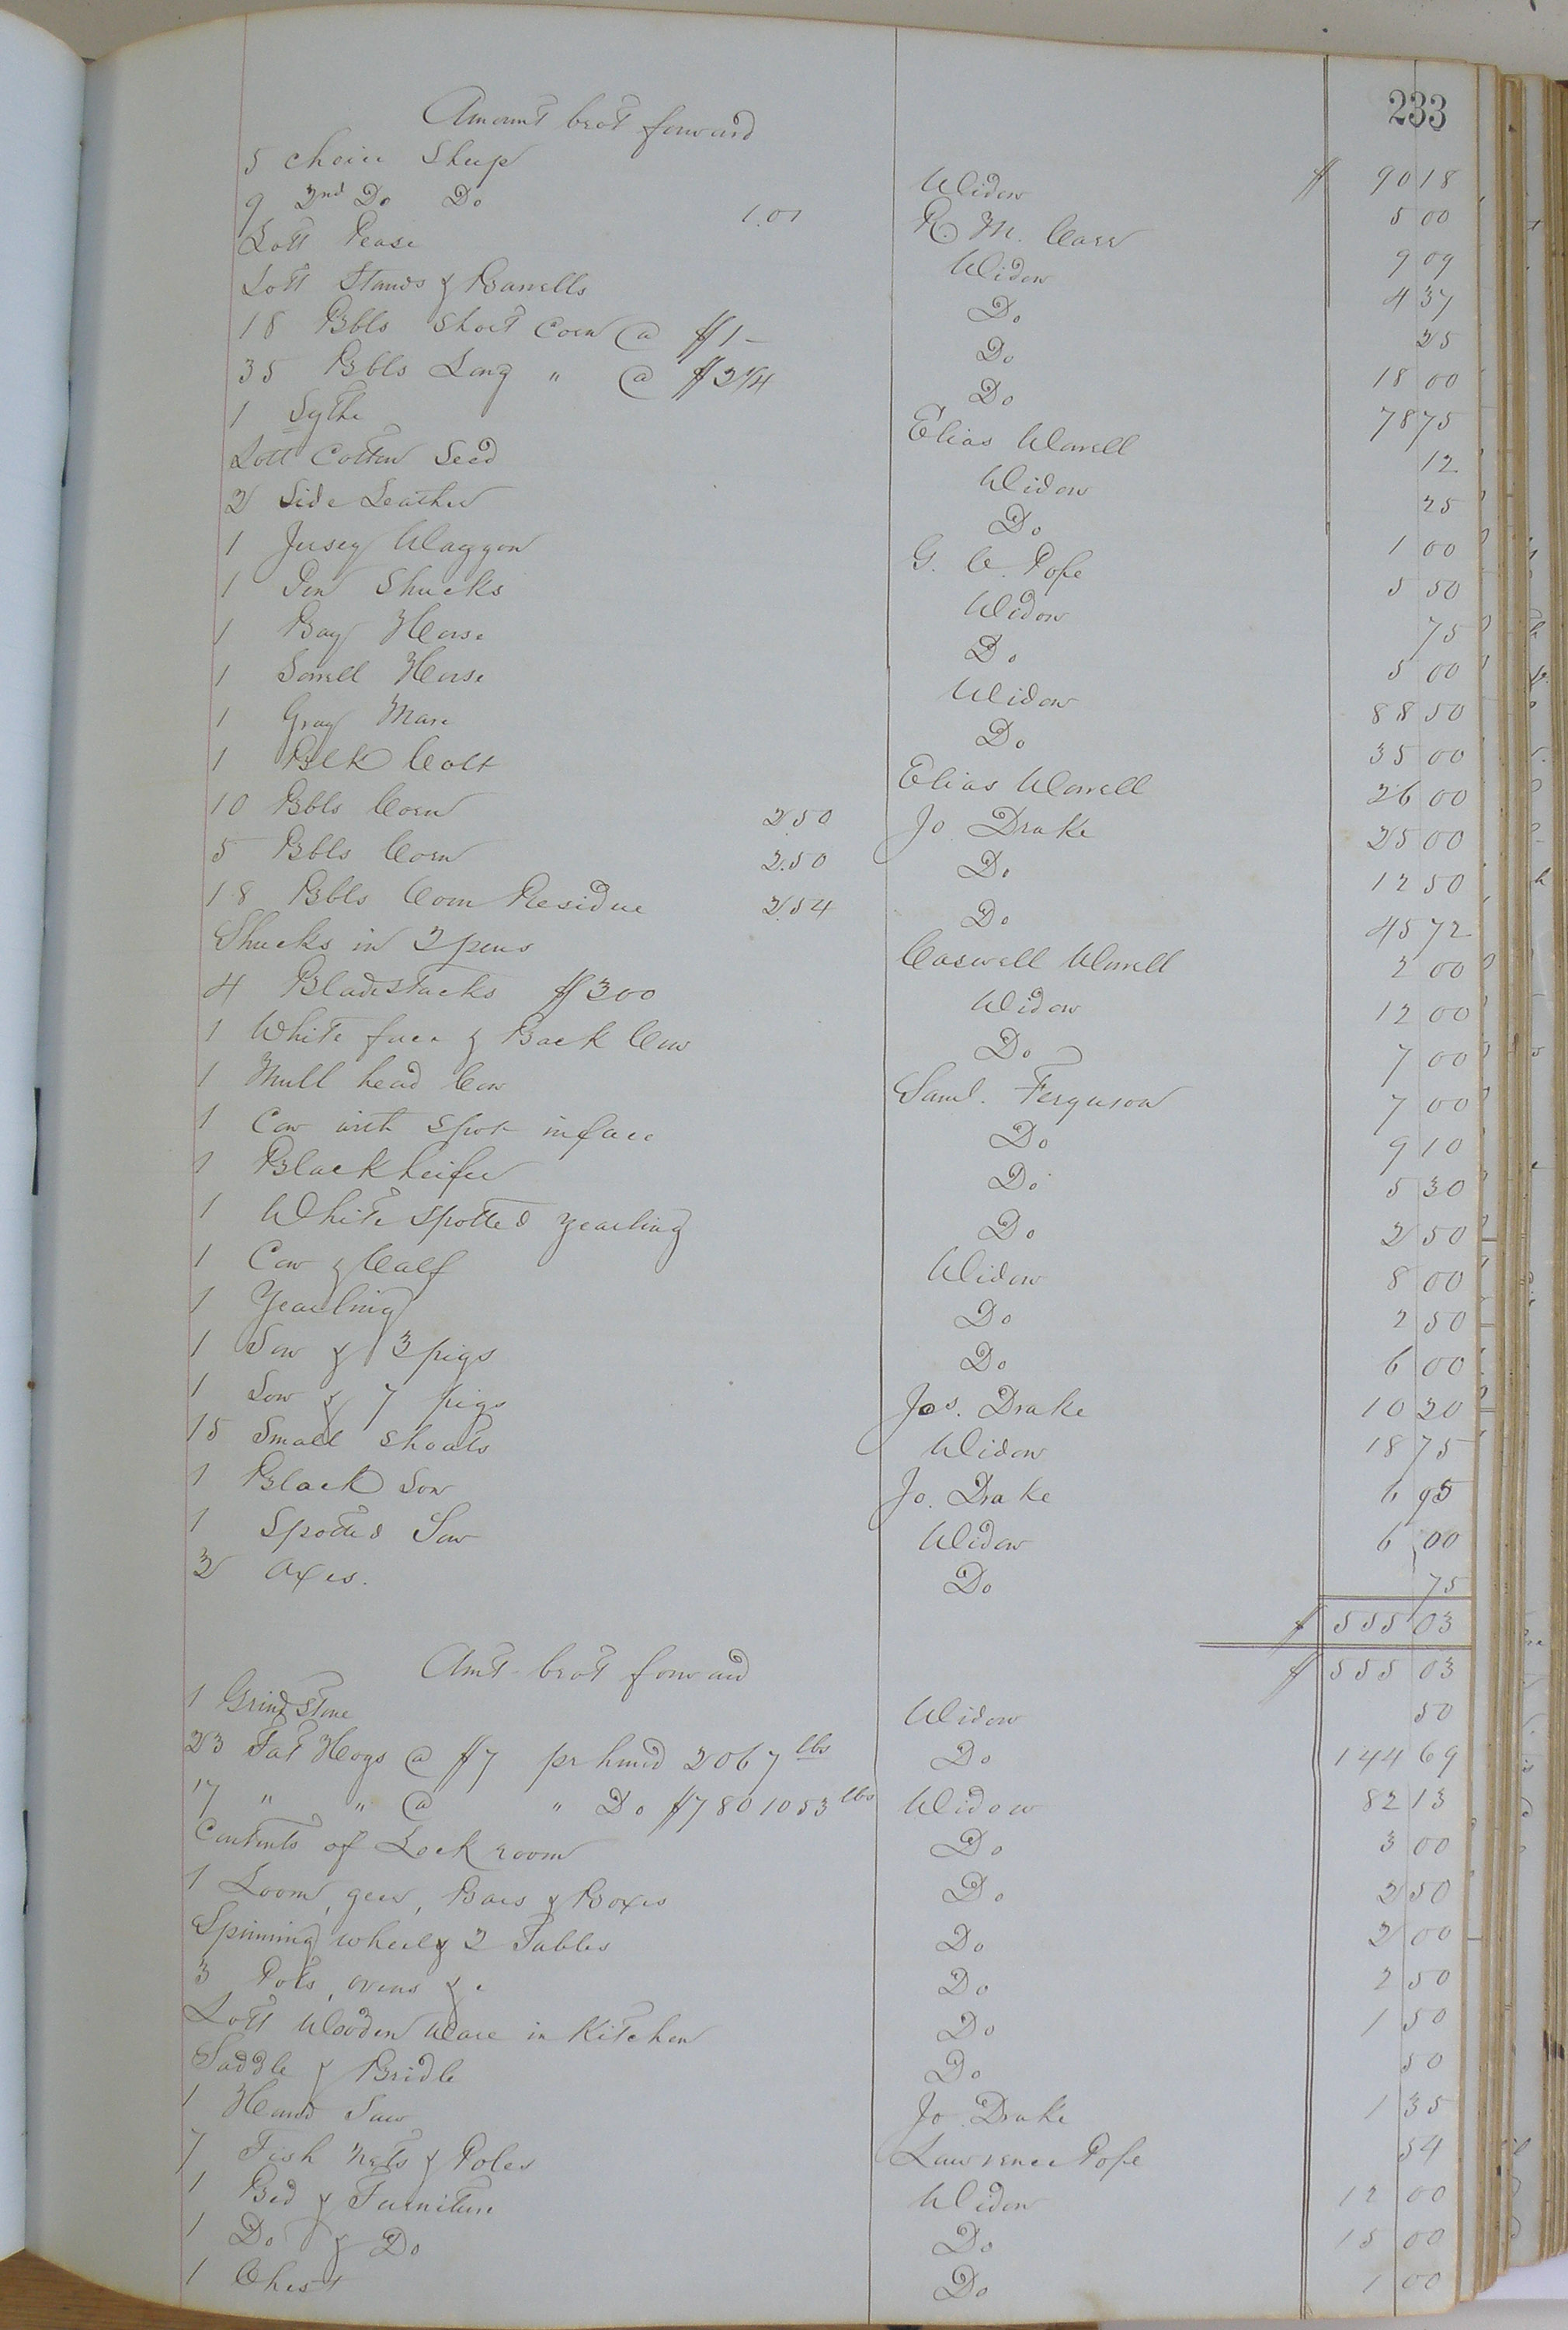 233
Amount brot forward $ 90 18
5 choice Sheep Widow 5 00
9 2nd Do Do 1.01 R. M. Carr 9 09
Lott Pease Widow 4 37
Lott Stands & Barrells Do 25
18 Bbls Short Corn @ $1 – Do 18 00
35 Bbls Long " @ $2 1/4 Do 78 75
1 Sythe Elias Worrell 12
Lott Cotton Seed Widow 25
2 Side Leather Do 1 00
1 Jersey Waggon G. C. Pope 5 50
1 Pen Shucks Widow 75
1 Bay Horse Do 5 00
1 Sorrell Horse Widow 88 50
1 Gray Mare Do 35 00
1 Blk Colt Elias Worrell 26 00
10 Bbls Corn 2.50 Jo Drake 25 00
5 Bbls Corn 2.50 Do 12 50
18 Bbls Corn Residue 2.54 Do 45 72
Shucks in 2 pens Caswell Worrell 2 00
4 Bladestacks $3 00 Widow 12 00
1 White face & Back Cow Do 7 00
1 Mull head Cow Saml. Ferguson 7 00
1 Cow with spot in face Do 9 10
1 Black heifer Do 5 30
1 White spotted yearling Do 2 50
1 Cow & Calf Widow 8 00
1 Yearling Do 2 50
1 Sow & 3 pigs Do 6 00
1 Sow & 7 pigs Jos. Drake 10 20
15 Small shoats Widow 18 75
1 Black Sow Jo. Drake 6 95
1 Spotted Sow Widow 6 00
2 Axes. Do 75
$ 555 03
Amt brot forward $ 555 03
1 Grind Stone Widow 50
23 Fat Hogs @ $7 pr hund 2067 lbs Do 144 69
17 " " @ " Do $7 80 1053 lbs Widow 82 13
Contents of Lock room Do 3 00
1 Loom, geer, Bars & Boxes Do 2 50
Spinning wheel & 2 Tables Do 2 00
3 Pots, ovens &c Do 2 50
Lott Wooden Ware in Kitchen Do 1 50
Saddle & Bridle Do 50
1 Hand Saw Jo. Drake 1 35
7 Fish Nets & Poles Lawrence Pope 54
1 Bed & Furniture Widow 12 00
1 Do & Do Do 15 00
1 Chest Do 1 00